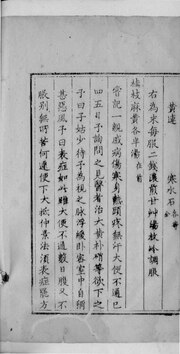 黃連　寒水石各等分
右為末每服二錢濃煎甘艸湯放冷調服
桂枝麻黃各半湯
嘗記一親戚病傷寒身熱頭疼無汗大便不通已
四五日予詢問之見醫者治大黃朴硝等欲下之
予曰子姑少待予為視之脉浮緩臥密室中自稱
甚惡風予曰表症如此雖大便不通數日腹又不
脹別無所苦何遽便下大抵仲景法須表症罷方